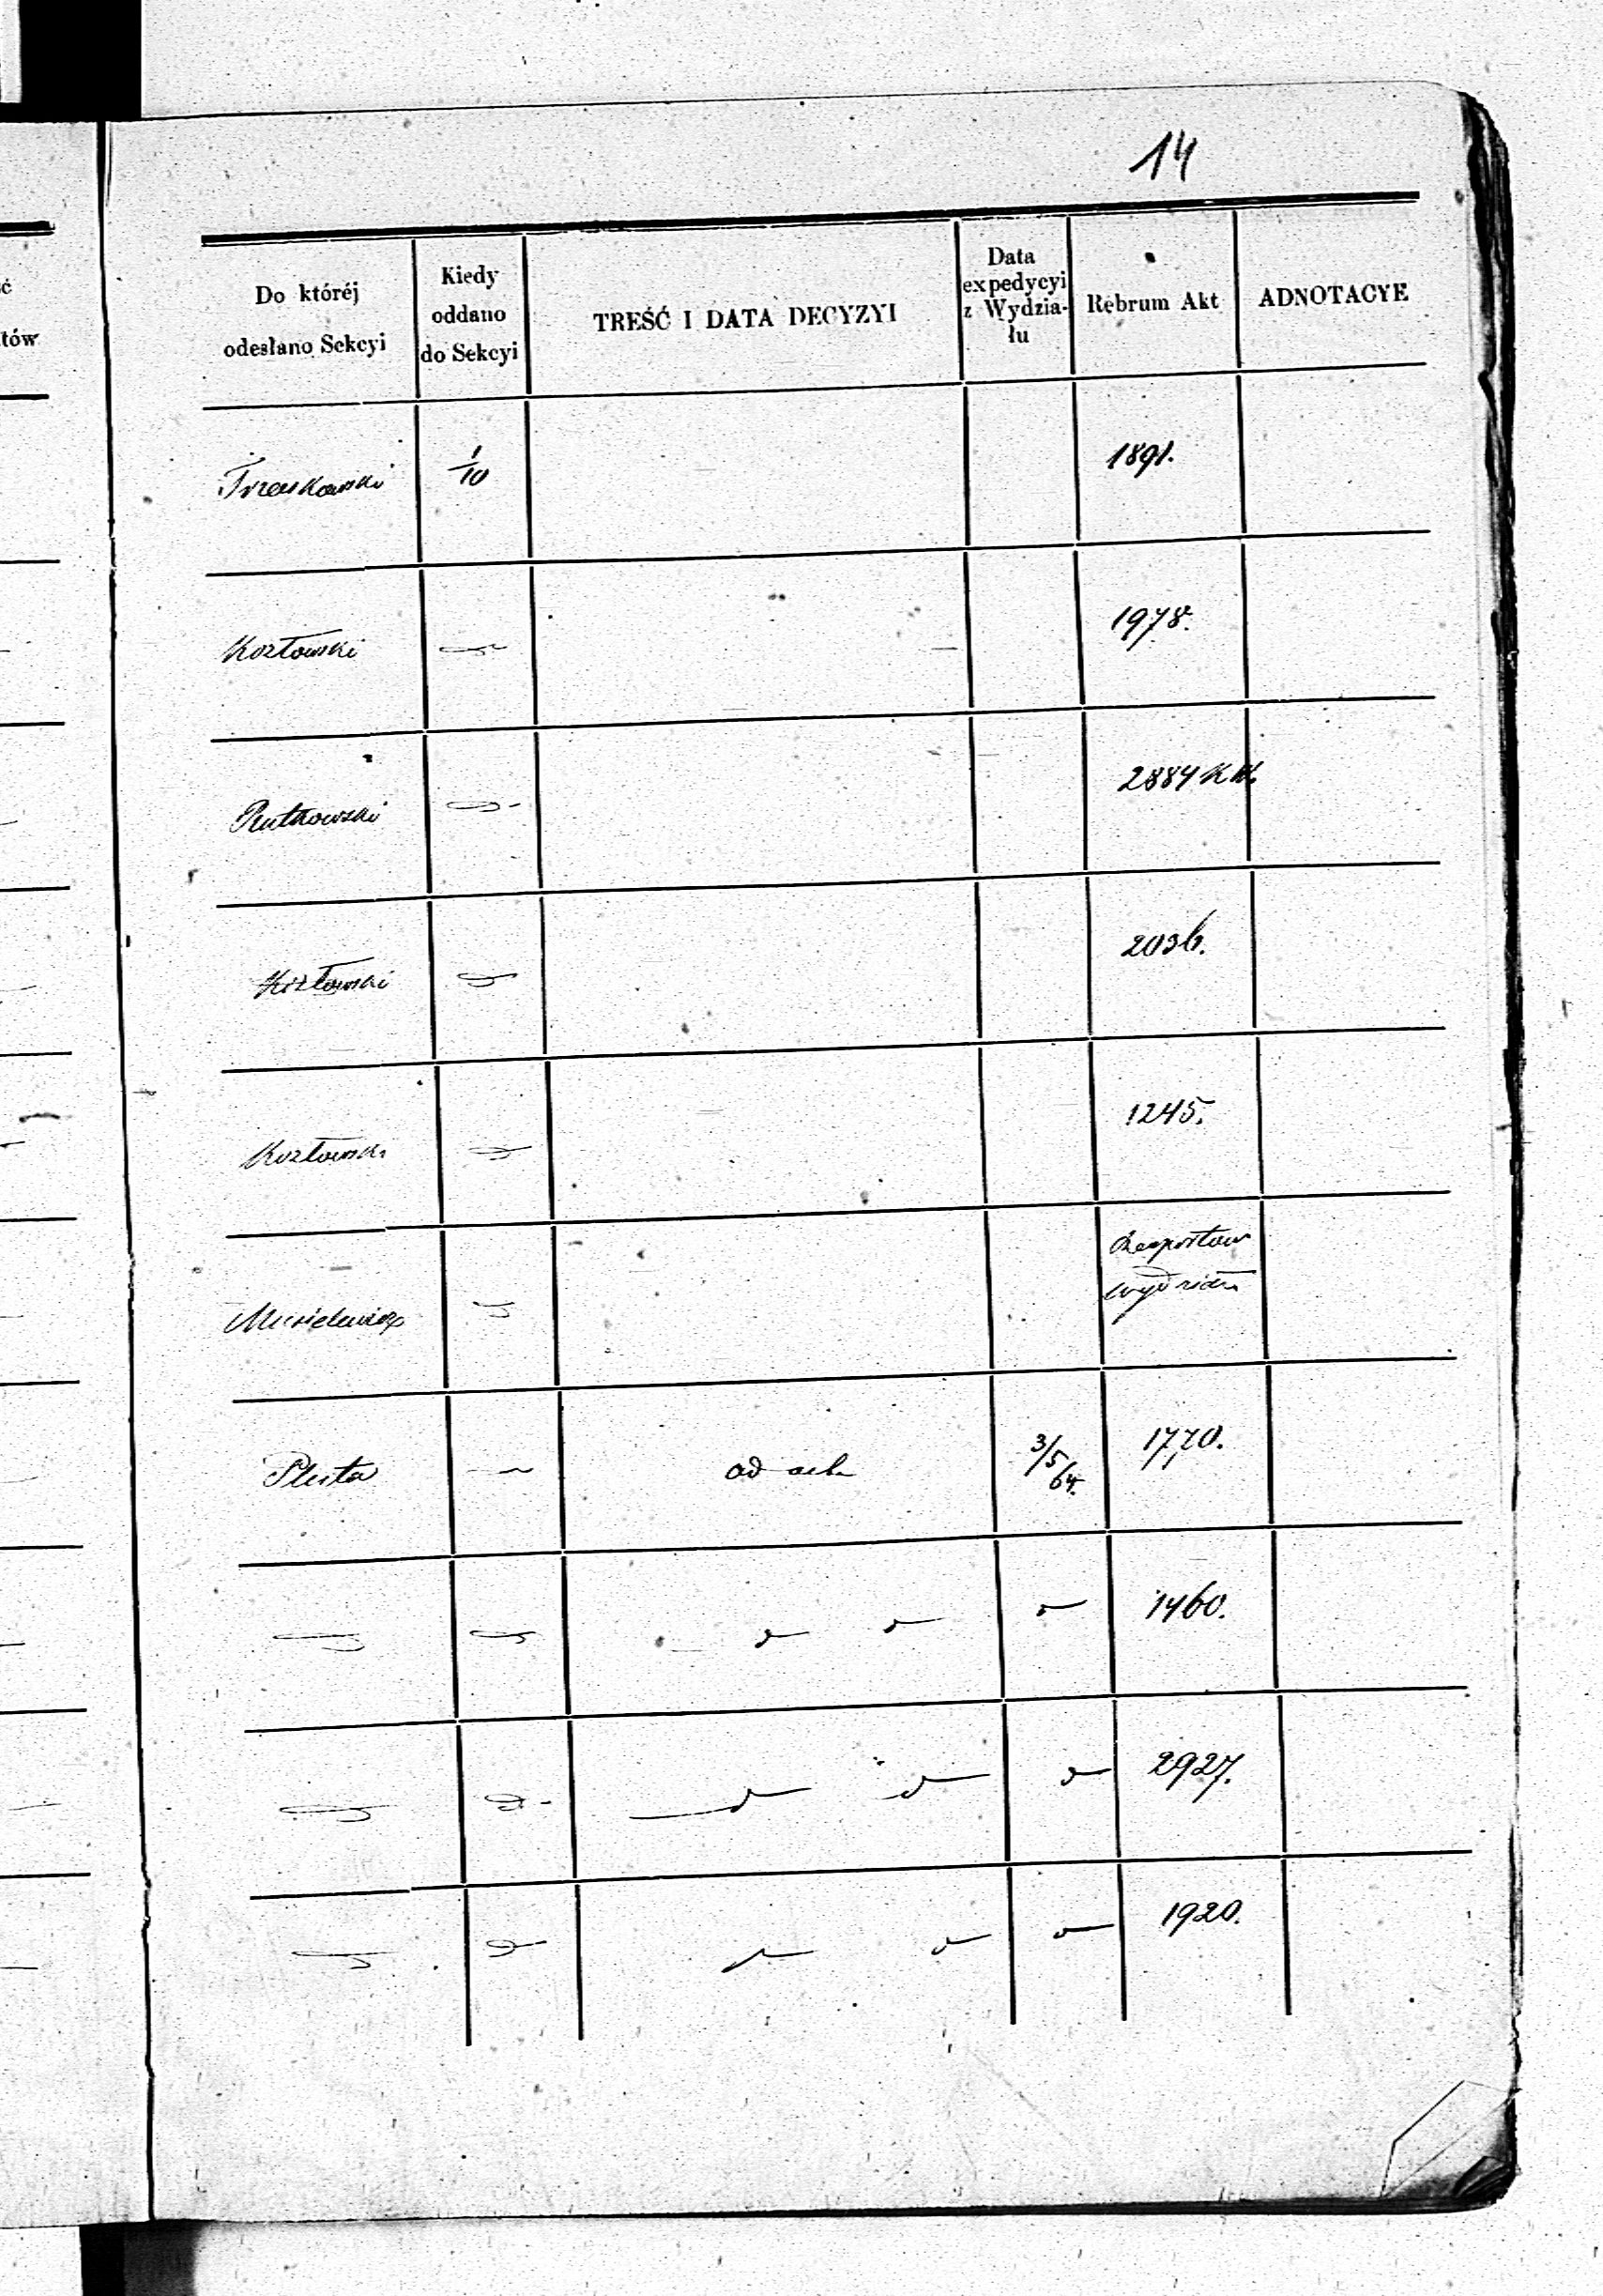 14
ć
tów
Do któréj
odesłano Sekcyi
Kiedy
oddano
do Sekcyi
TREŚĆ I DATA DECYZYI
Data
expedycyi
z Wydzia-
łu
Rębrum Akt
ADNOTACYE
1/10
1891.
Kozłowski
1978.
Rutkowski
2884
Kozłowski
2036.
Kozłowski
1245.
Pluta
ad acta
3/5 64.
1770.
1460.
2927.
1920.